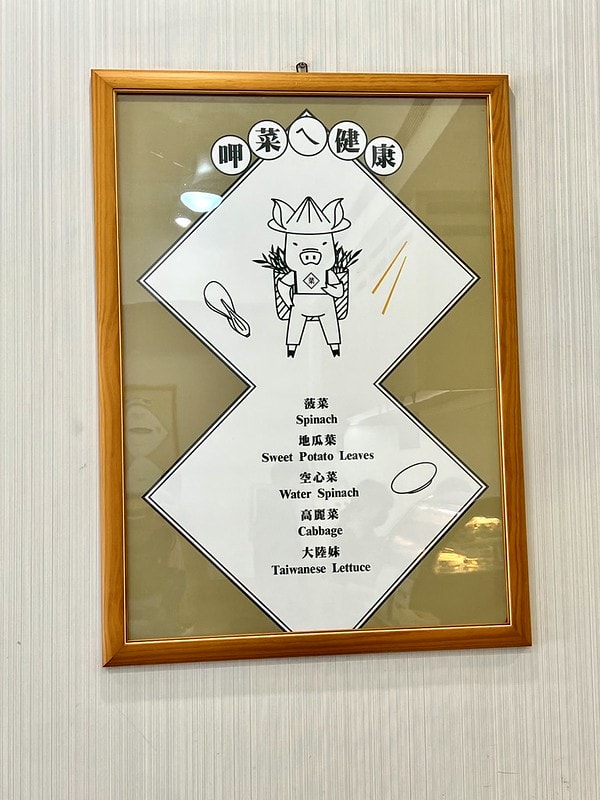 呷菜ㄟ健康
菜
菠菜
Spinach
地瓜葉
Sweet Potato Leaves
空心菜
Water Spinach
高麗菜
Cabbage
大陸妹
Taiwanese Lettuce